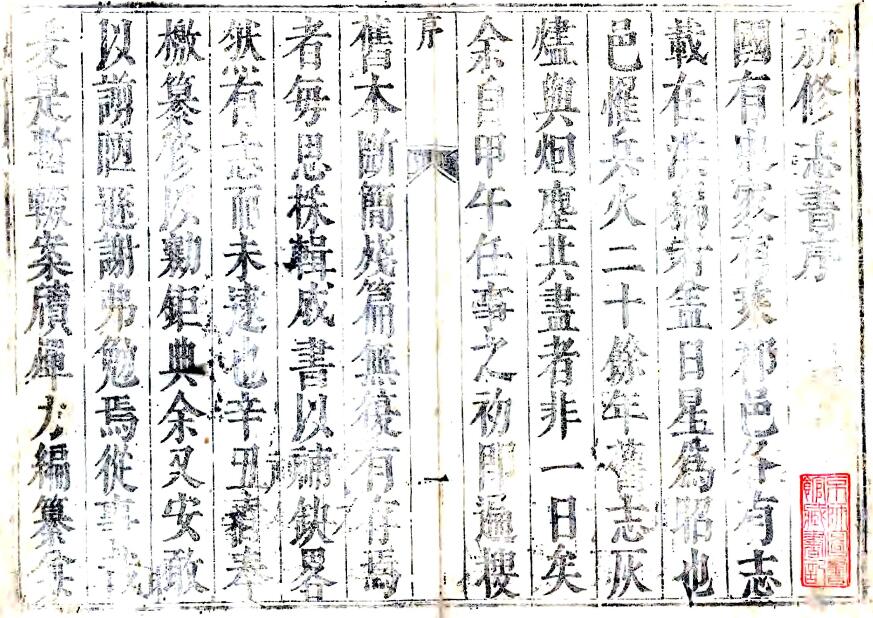 新修志書序
國有史家有乘郡邑各有志
載在洪盖日星為昭也
邑罹兵火二十餘年舊志灰
燼與烟塵共盡者非一日矣
余自甲午任事之初即遍搜
序
一
舊本斷簡殘篇無復有存焉
者每思採輯成書以補鈌畧
然有志而未逮也辛丑春奉
檄纂修以勷鉅典余又安敢
以謭陋遜謝弗勉焉從事哉
爰是暫輟案牘殫力編纂
京師圖書
館藏書記